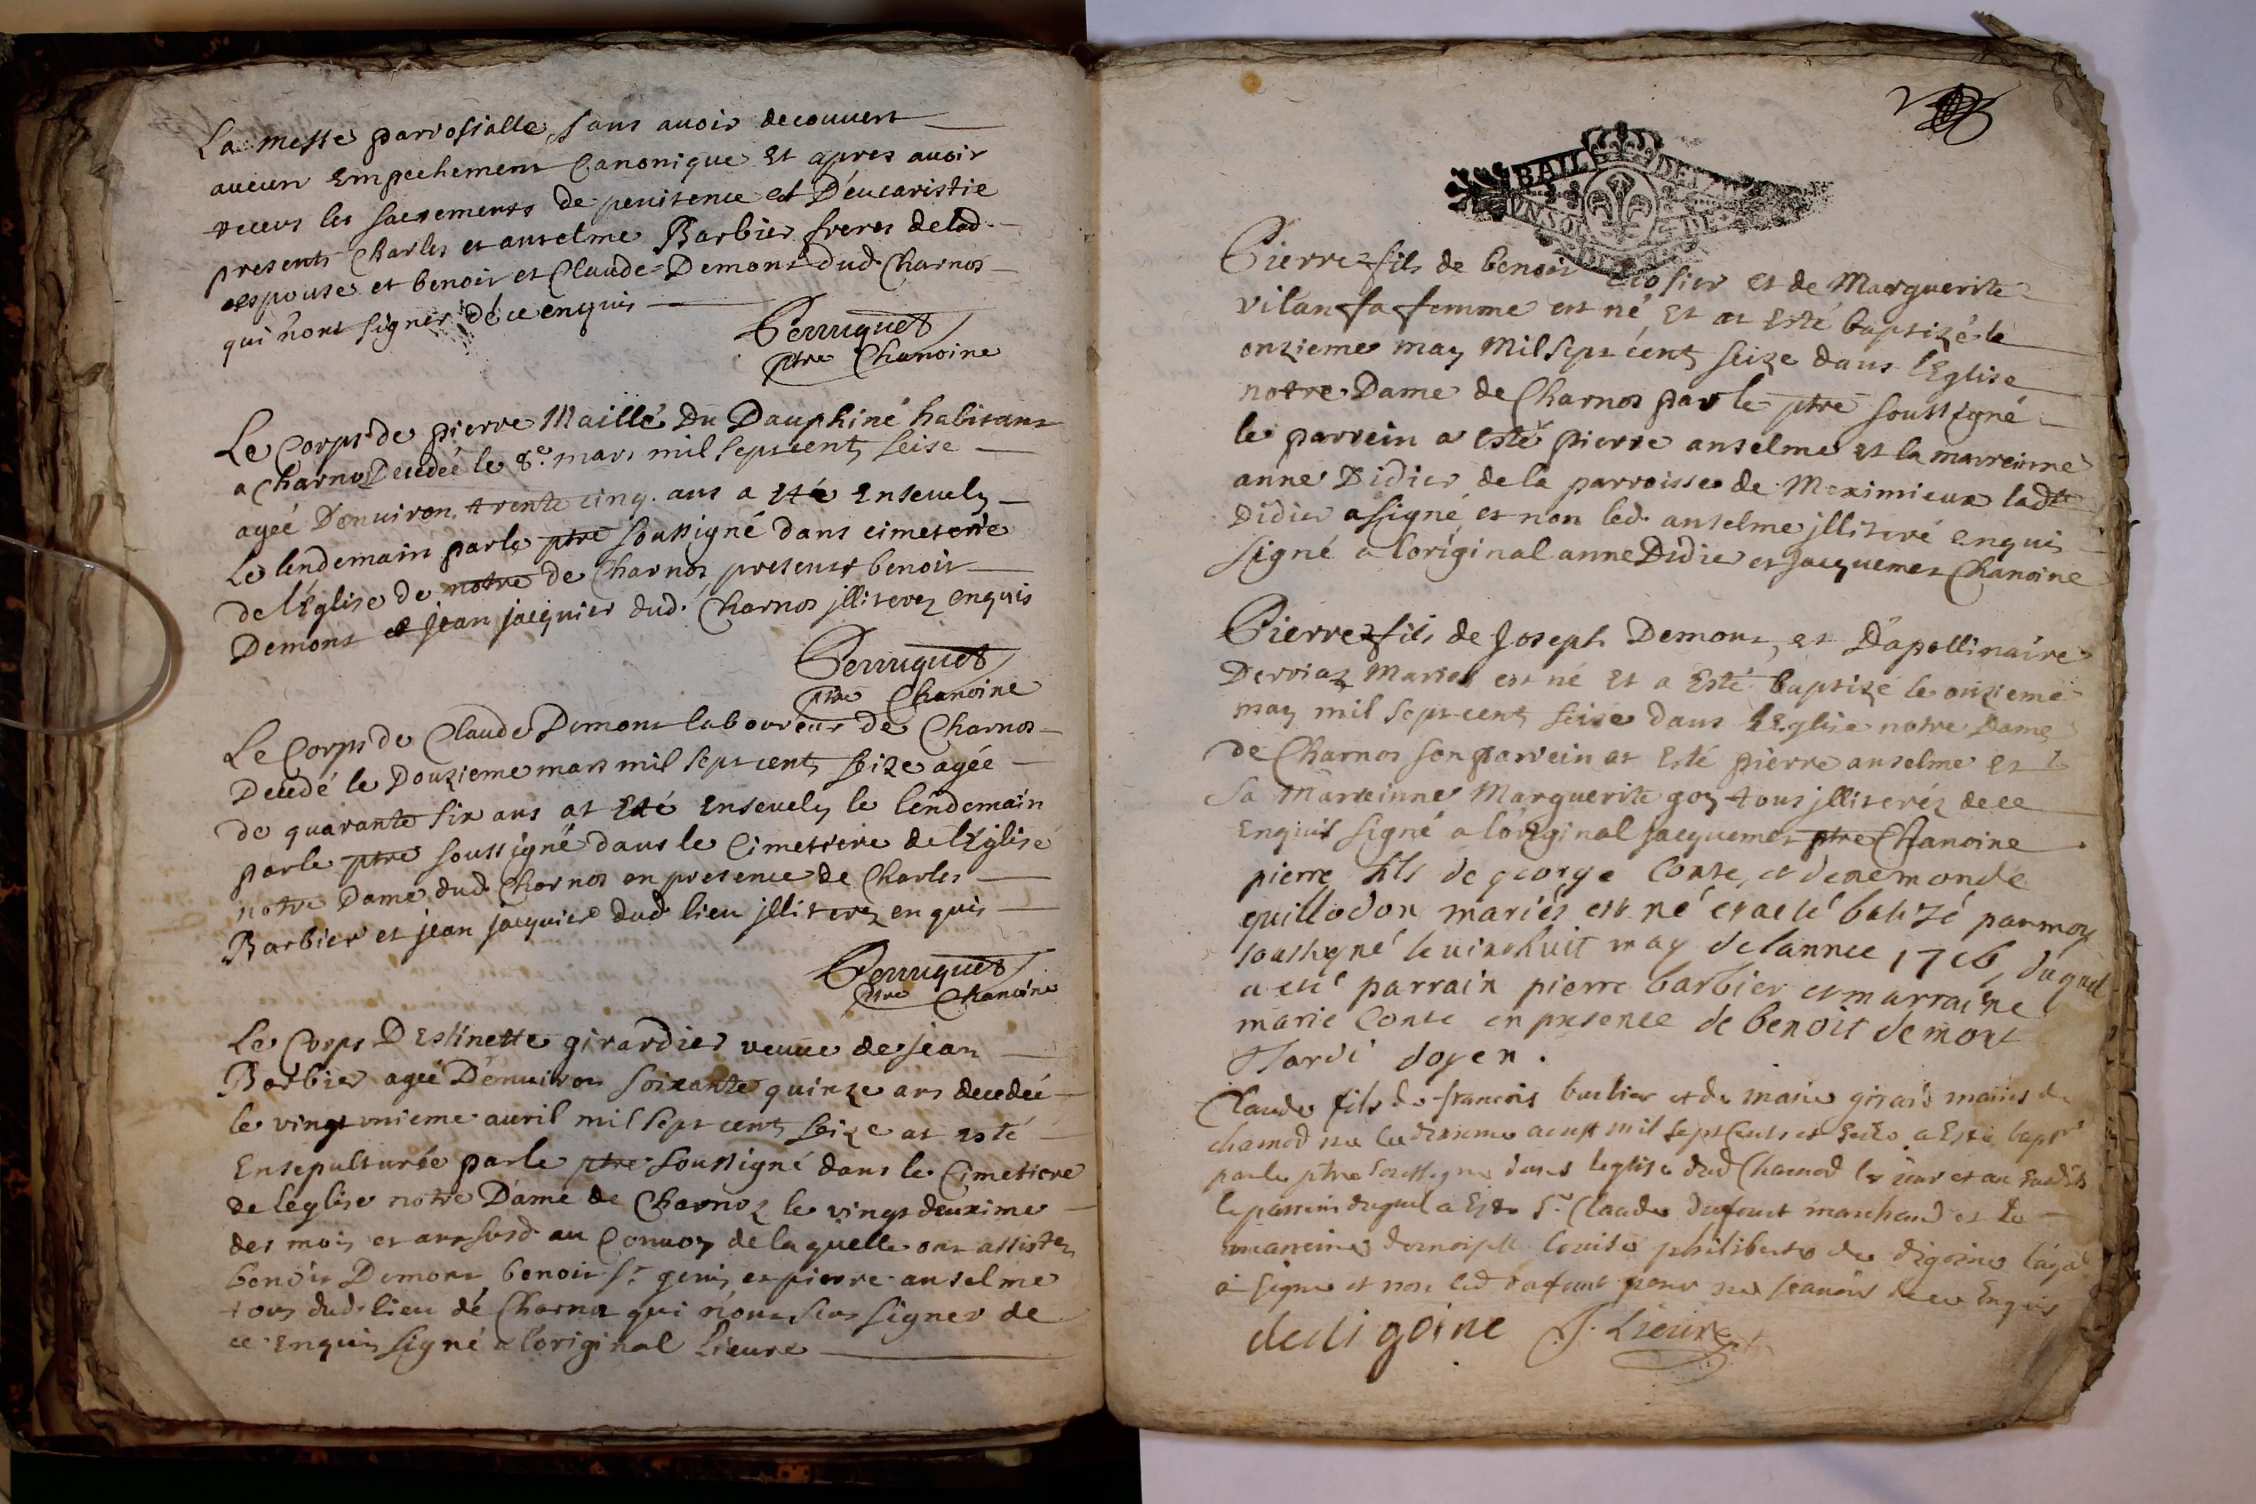 La messe parrosialle, sans auoir decouvert
aucun Empechement Canonique Et apres auoir
receus les sacrements de penitence et D'eucaristie
presents Charles et anselme Barbier freres delad.
espouse et benoit et Claude Demont dud. Charnos
qui n'ont signer de ce enquis
Perruquet
ptre Chanoine
Le Corps de pierre Maillé Du Dauphiné habitant
a Charnos Decedeé le 8e. mars mil sept cent seise
ageé D'enuiron trente cinq ans a eté Enseuely
Le lendemain par le ptre soussigné dans cimeterre
de l'Eglise de notre de Charnos present benoit
Demont et jean jacquier dud. Charnos jlliterez enquis
Perruquet
ptre Chanoine
Le Corps de Claude Demont laboureur de Charnos
Decedé le Douzieme mars mil sept cent seize ageé
de quarante six ans at Eté Enseuely le lendemain
par le ptre soussigné dans le Cimetiere de l'Eglise
notre Dame dud. Charnos en presence de Charles
Barbier et jean jacquier dud. lieu jlliterez enquis
Perruquet
ptre Chanoine
Le Corps D'Estinette girardier veuue de jean
Barbier ageé D'enuiron soixante quinze ans decedeé
le vingt unieme auril mil sept cent seize at esté
Ensepulturée par le ptre soussigné dans le Cimetiere
de leglise notre Dame de Charnoz le vingt deuxime
des mois et an susd. au Conuoy de laquelle ont assistez
benoit Demont benoit St. genis et pierre anselme
tous dud. lieu de Charnoz qui n'ont sceu signer de
ce enquis signé a l'original Lieure
BAIL
Pierre fils de benoit Crosier et de Marguerite
vilan sa femme est né Et at Esté baptizé le
onzieme may Mil sept cent seize dans l'Eglise
notre Dame de Charnos par le ptre soussigné
le parrein a esté pierre anselme et la marreinne
anne Didier de la parroisse de Meximieux lad.
Didier a signé et non led. anselme jlliteré enquis
signé a l'original anne Didier et Jacquemet Chanoine
Pierre fils de Joseph Demont, et D'apollinaire
Derriaz Mariés est né Et a Esté baptizé le onzieme
may mil sept cent seize dans l'Eglise notre Dame
de Charnos son parrein at Esté pierre anselme et
Sa Marreinne Marguerite goy tous jlliterez de ce
Enquis signé a l'original Jacquemet ptre Chanoine
pierre fils de george Conte, et denemonde
quillodon mariés est né et a eté batizé par moy
soussigné le vint huit may de lannee 1716, duquel
a eté parrain pierre barbier et marraine
marie Conte en presence de benoit demont
Tardi doyen.
Claude fils de francois barbier et de marie girard mariés de
charnod né le deuxieme aoust mil sept cent et seize a Esté bapt
par le ptre soussigné dans leglise dud Charnod les jour et an susdits
le parrein duquel a Esté Sr. Claude Dufour marchand et la
marreine demoiselle louise philiberte de digoine laquelle
a signé et non led dufour pour ne scauoir de ce Enquis
dedigoine J. Lieure